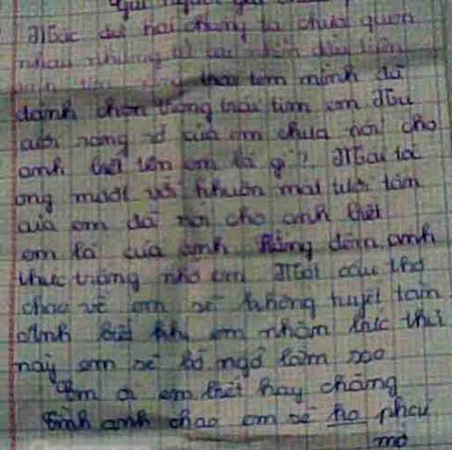 Gửi người
Mặc dù hai chúng ta chưa quen
nhau nhưng đầu tiên
trái tim mình đã
dành chọn trong trái tim em Nụ
cười rạng rỡ của em chưa nói cho
anh biết tên em là gì? Mái tóc
óng mướt với khuôn mặt tươi tắm
của em đã nói cho anh biết
em là của anh Hằng đêm anh
thức trắng nhớ em Một câu thơ
về em sẽ không tuyệt tấm
Anh biết khi em nhậm bức thư
này em sẽ bỡ ngỡ lắm sao
Em ơi em biết hay chăng
Tình anh chao em sẽ ho phai
mờ